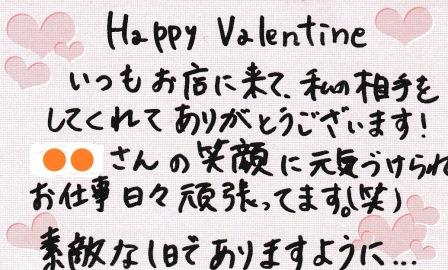 Happy Valentine
いつもお店に来て、私の相手を
してくれてありがとうございます!
さんの笑顔に元気づけられ
お仕事日々頑張ってます。(笑)
素敵な1日でありますように...